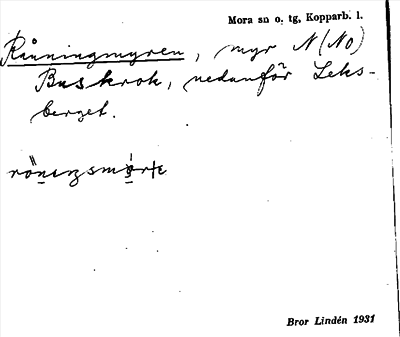 Mora sn o. tg, Kopparb. l.
Rånningmyren, myr N (NO)
Buskrok, nedanför Leks-
berget.
Bror Lindén 1931